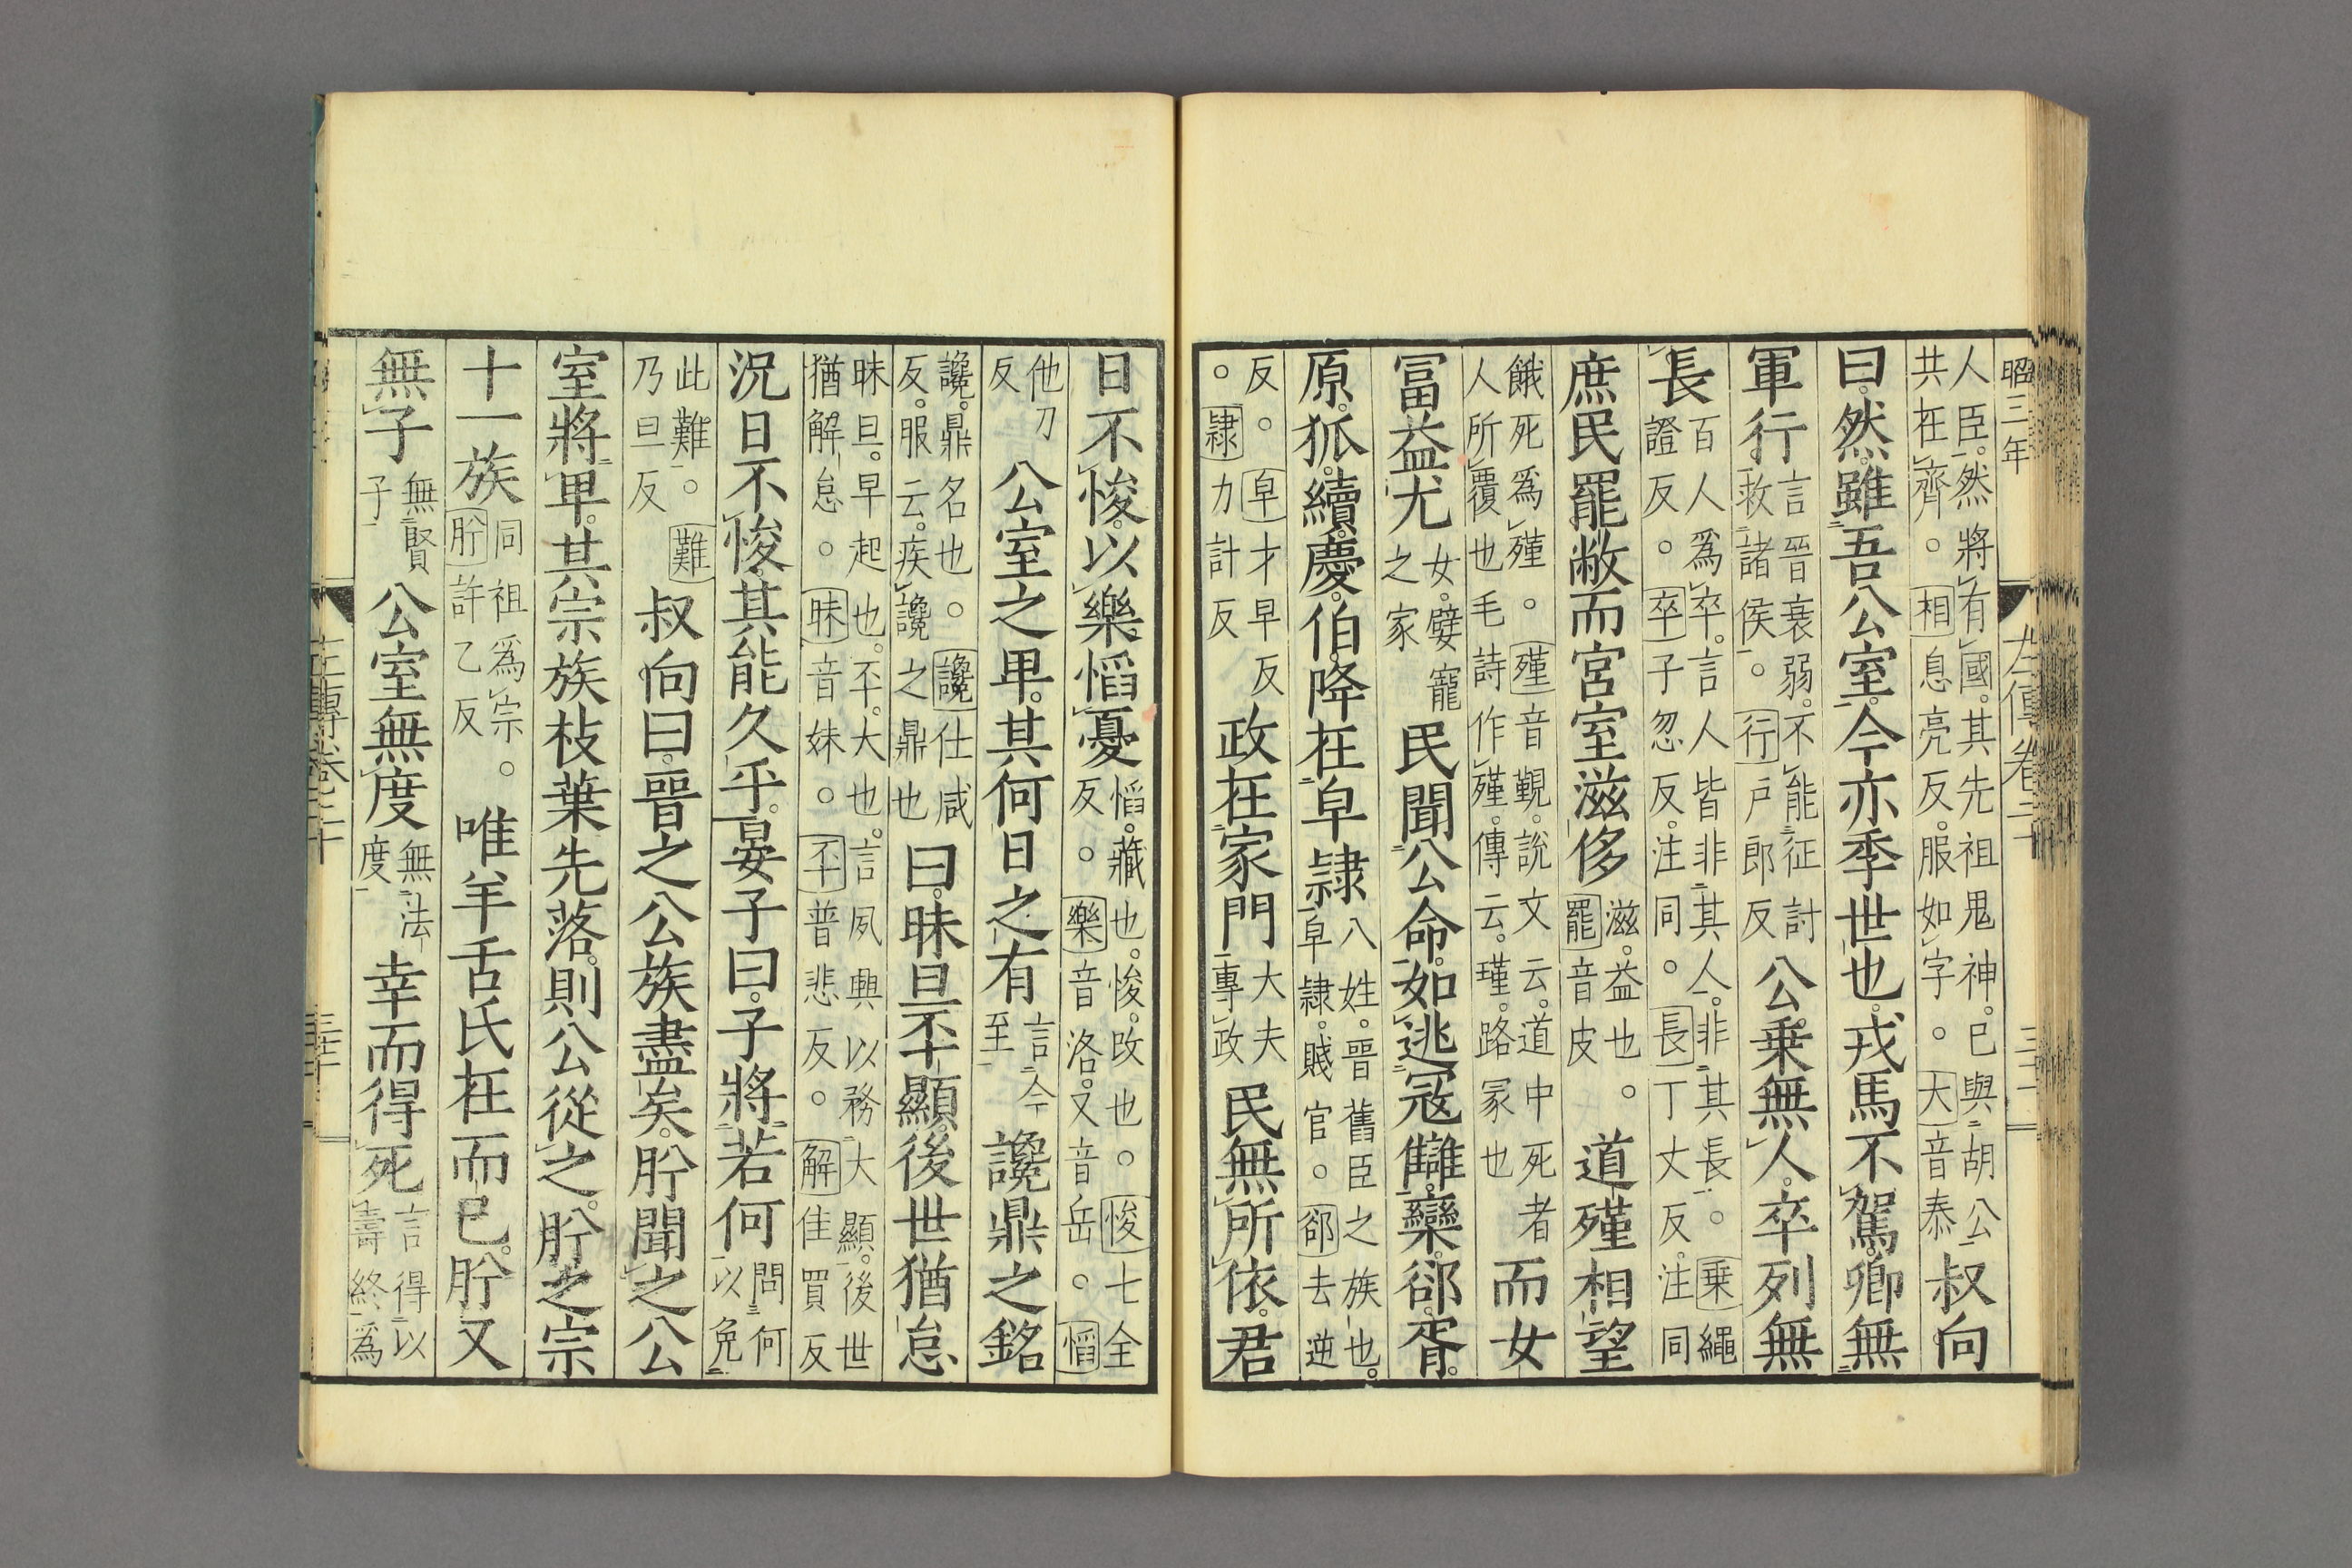 昭三年　左傳卷二十
人臣。然將有國。其先祖鬼神。已與胡公共在齊。○相息亮反。服如字。○大音泰叔向
曰。然。雖吾公室。今亦季世也。戎馬不駕。卿無
軍行言晉衰弱。不能征討救諸侯。○行戶郎反公乗無人。卒列無
長百人爲卒。言人皆非其人。非其長。○乗繩證反。○卒子忽反。注同。○長丁丈反。注同
庶民罷敝而宮室滋侈滋。益也。○罷音皮道殣相望
餓死爲殣。○殣音覲。說文云。道中死者人所覆也毛詩作殣。傳云。瑾。路冡也而女
冨益尤女。嬖寵之家民聞公命。如逃寇讎。欒。郤。胥。
原。狐。續。慶。伯。降在皁隷八姓。晋舊臣之族也。皁隷。賤官。○郤去逆
反。○皁才早反。○隷力計反政在家門大夫專政民無所依。君
日不悛。以樂慆憂慆。藏也。悛。改也。○悛七全反。○樂音洛。又音岳。○慆
他刀反公室之卑。其何日之有言今至讒鼎之銘
讒。鼎名也。○讒仕咸反。服云。疾讒之鼎也曰。昧旦丕顯。後世猶怠
昧旦。早起也。丕。大也。言夙興以務大顯。後世猶解怠。○昧音妹。○丕普悲反。○解佳買反
況日不悛。其能久乎。晏子曰。子將若何問何以免
此難。○難乃旦反叔向曰。晉之公族盡矣。肸聞之。公
室將卑。其宗族枝葉先落。則公從之。肸之宗
十一族同祖爲宗。○肸許乙反唯羊舌氏在而已。肸又
無子無賢子公室無度無法度幸而得死言得以壽終爲